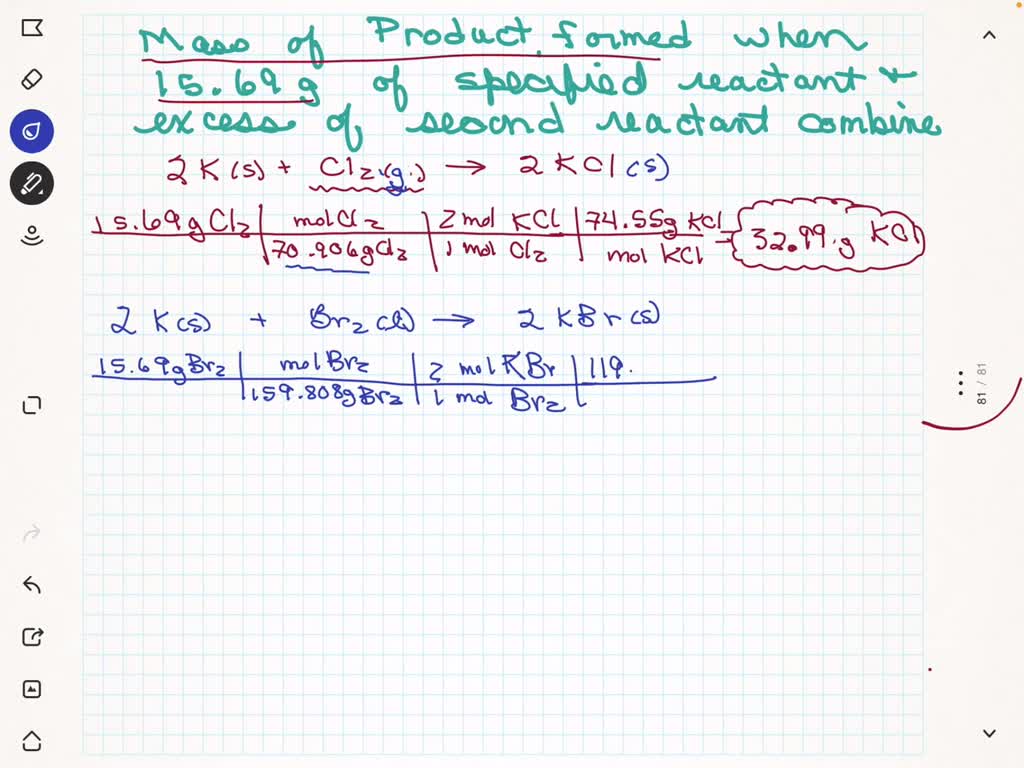 Mass of Product formed when
15.69 g of specified reactant +
excess of second reactant combine
2 K (s) + Cl2 (g) → 2 KCl (s)
15.69 g Cl2 | mol Cl2 | 2 mol KCl | 74.55 g KCl → 32.99 g KCl
70.906 g Cl2 | 1 mol Cl2 | mol KCl
2 K(s) + Br2 (l) → 2 KBr (s)
15.69 g Br2 | mol Br2 | 2 mol KBr | 119.
159.808 g Br2 | 1 mol Br2
81 / 81